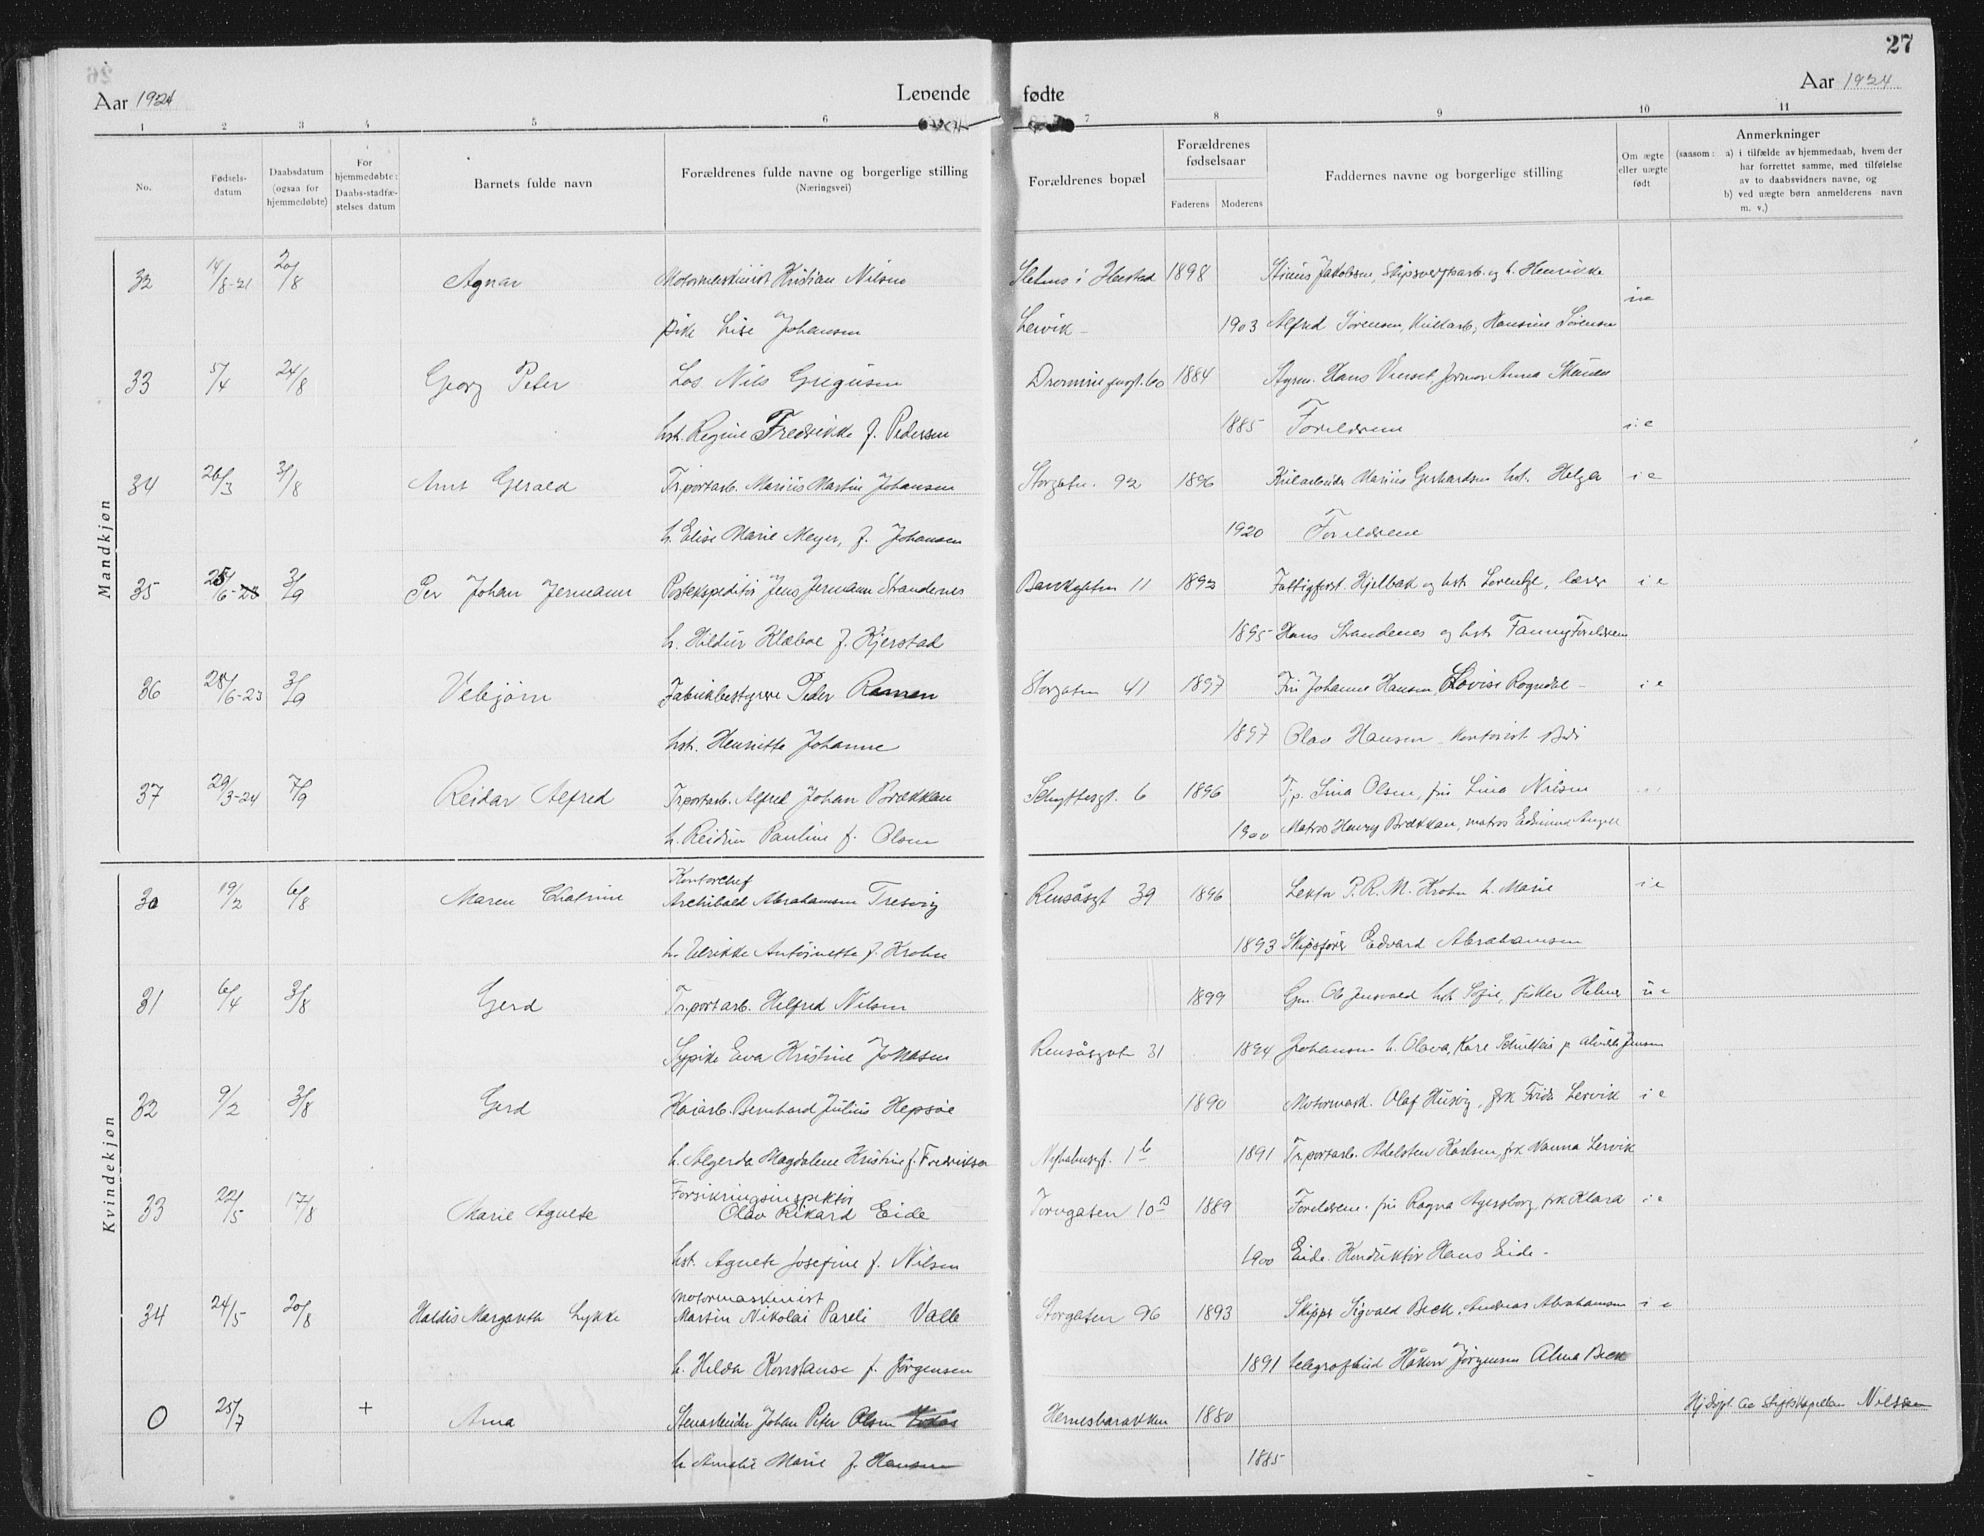 27
Aar 1924 Levende fødte Aar 1924
1 2 3 4 5 6 7 8 9 10 11
No.
Fødsels-
datum
Daabsdatum
(ogsaa for
hjemmedøbte)
For
hjemmedøbte:
Daabs-stadfæ-
stelses datum
Barnets fulde navn
Forældrenes fulde navne og borgerlige stilling
(Næringsvei)
Forældrenes bopæl
Forældrenes
fødselsaar
Faderens Moderens
Faddernes navne og borgerlige stilling
Om ægte
eller uægte
født
Anmerkninger
(saasom: a) i tilfælde av hjemmedaab, hvem der
har forrettet samme, med tilføielse
av to daabsvidners navne, og
b) ved uægte børn anmelderens navn
m. v.)
Mandkjøn
32 14/8-21 20/8 Agnar Motormaskinist Kristian Nilsen i Harstad 1898 Jakobsen, Skipsverftsarb. og h. Henrikke
pike Lise Johansen Lervik 1903 Alfred Sørensen, Hansine Sørensen
33 5/4 24/8 Georg Peter Los Nils Gregusen 60 1884 Styrm. Hans Anna
hst. Regine Fredrikke f. Pedersen 1885 Foreldrene i e
34 26/3 31/8 Arnt Gerald Tr.portarb. Marius Martin Johansen Storgatn. 92 1896 Kularbeider Marius Gerhardsen hst. Helga i e
h. Elise Marie Meyer, f. Johansen 1920 Foreldrene
35 25/6-23 3/9 Per Johan Jermann Postekspeditør Jens Jermann Strandenes Bankgaten 11 1892 Fattigforst. Hjelbak og hst. Lorentze, lærer i e
h. Hildur Klæboe f. Kjerstad 1895 Hans Strandenes og hst. Fanny Foreldrene
36 28/6-23 3/9 Vebjørn Fabrikbestyrer Peder Ramen Storgaten 41 1897 Fru Johanne Hansen Lovise Rognedal i e
hst. Henriette Johanne 1897 Olav Hansen kontorist
37 29/3-24 7/9 Reidar Alfred Tr.portarb. Alfred Johan Brækkan Schyttesgt. 6 1896 Tjp. Lina Olsen, fru Lina Nilsen
h. Reidun Pauline f. Olsen 1900 Matros Henry Brækkan, matros Edmund Angell
Kvindekjøn
Kontorchef
30 19/2 6/8 Maren Katrine Archibald Abrahamsen Tresvig Rensåsgt 39 1896 Lektor P. R. M. Krohn h. Marie i e
h. Ulrikke Antoinette f. Krohn 1893 Skipsfører Edvard Abrahamsen
31 6/4 3/8 Gerd Tr.portarb. Helfred Nilsen 1899 Ole hst. Sofie, fisker Helmer u e
Sypike Eva Kristine Johansen Rensåsgatn 31 1894 Johansen h. Olava, Kare p. Alvilde Jensen
32 9/2 3/8 Gerd Kaiarb. Bernhard Julius Hepsøe 1890 Motormask. Olaf Husvig, frk Frida Lervik i e
h. Algerda Magdalene Kristine f. Fredriksen 1 b 1891 Tr.portarb. Adelsten Karlsen, frk Nanna Lervik
Forsikringsinspektør
33 22/5 17/8 Marie Agnete Olav Rikard Eide Torvgaten 10 B 1889 Foreldrene. fru Ragna Agersborg, frk Klara i e
hst. Agnete Josefine f. Nilsen 1900 Eide. Konduktør Hans Eide -
Motormaskinist
34 24/5 20/8 Haldis Margareth Lykke Martin Nikolai Pareli Valle Storgaten 96 1893 Skipper Sigvald Beck. Andreas Abrahamsen i e
h. Hilda Konstanse f. Jørgensen 1891 telegrafbud Håkon Jørgensen Alma Beck
0 25/7 + Arna Stenarbeider Johan Peter Olsen Hernesbarakken 1880 Hj.døpt av Stiftskapellan Nilsen
h. Amalie Marie f. Hansen 1885